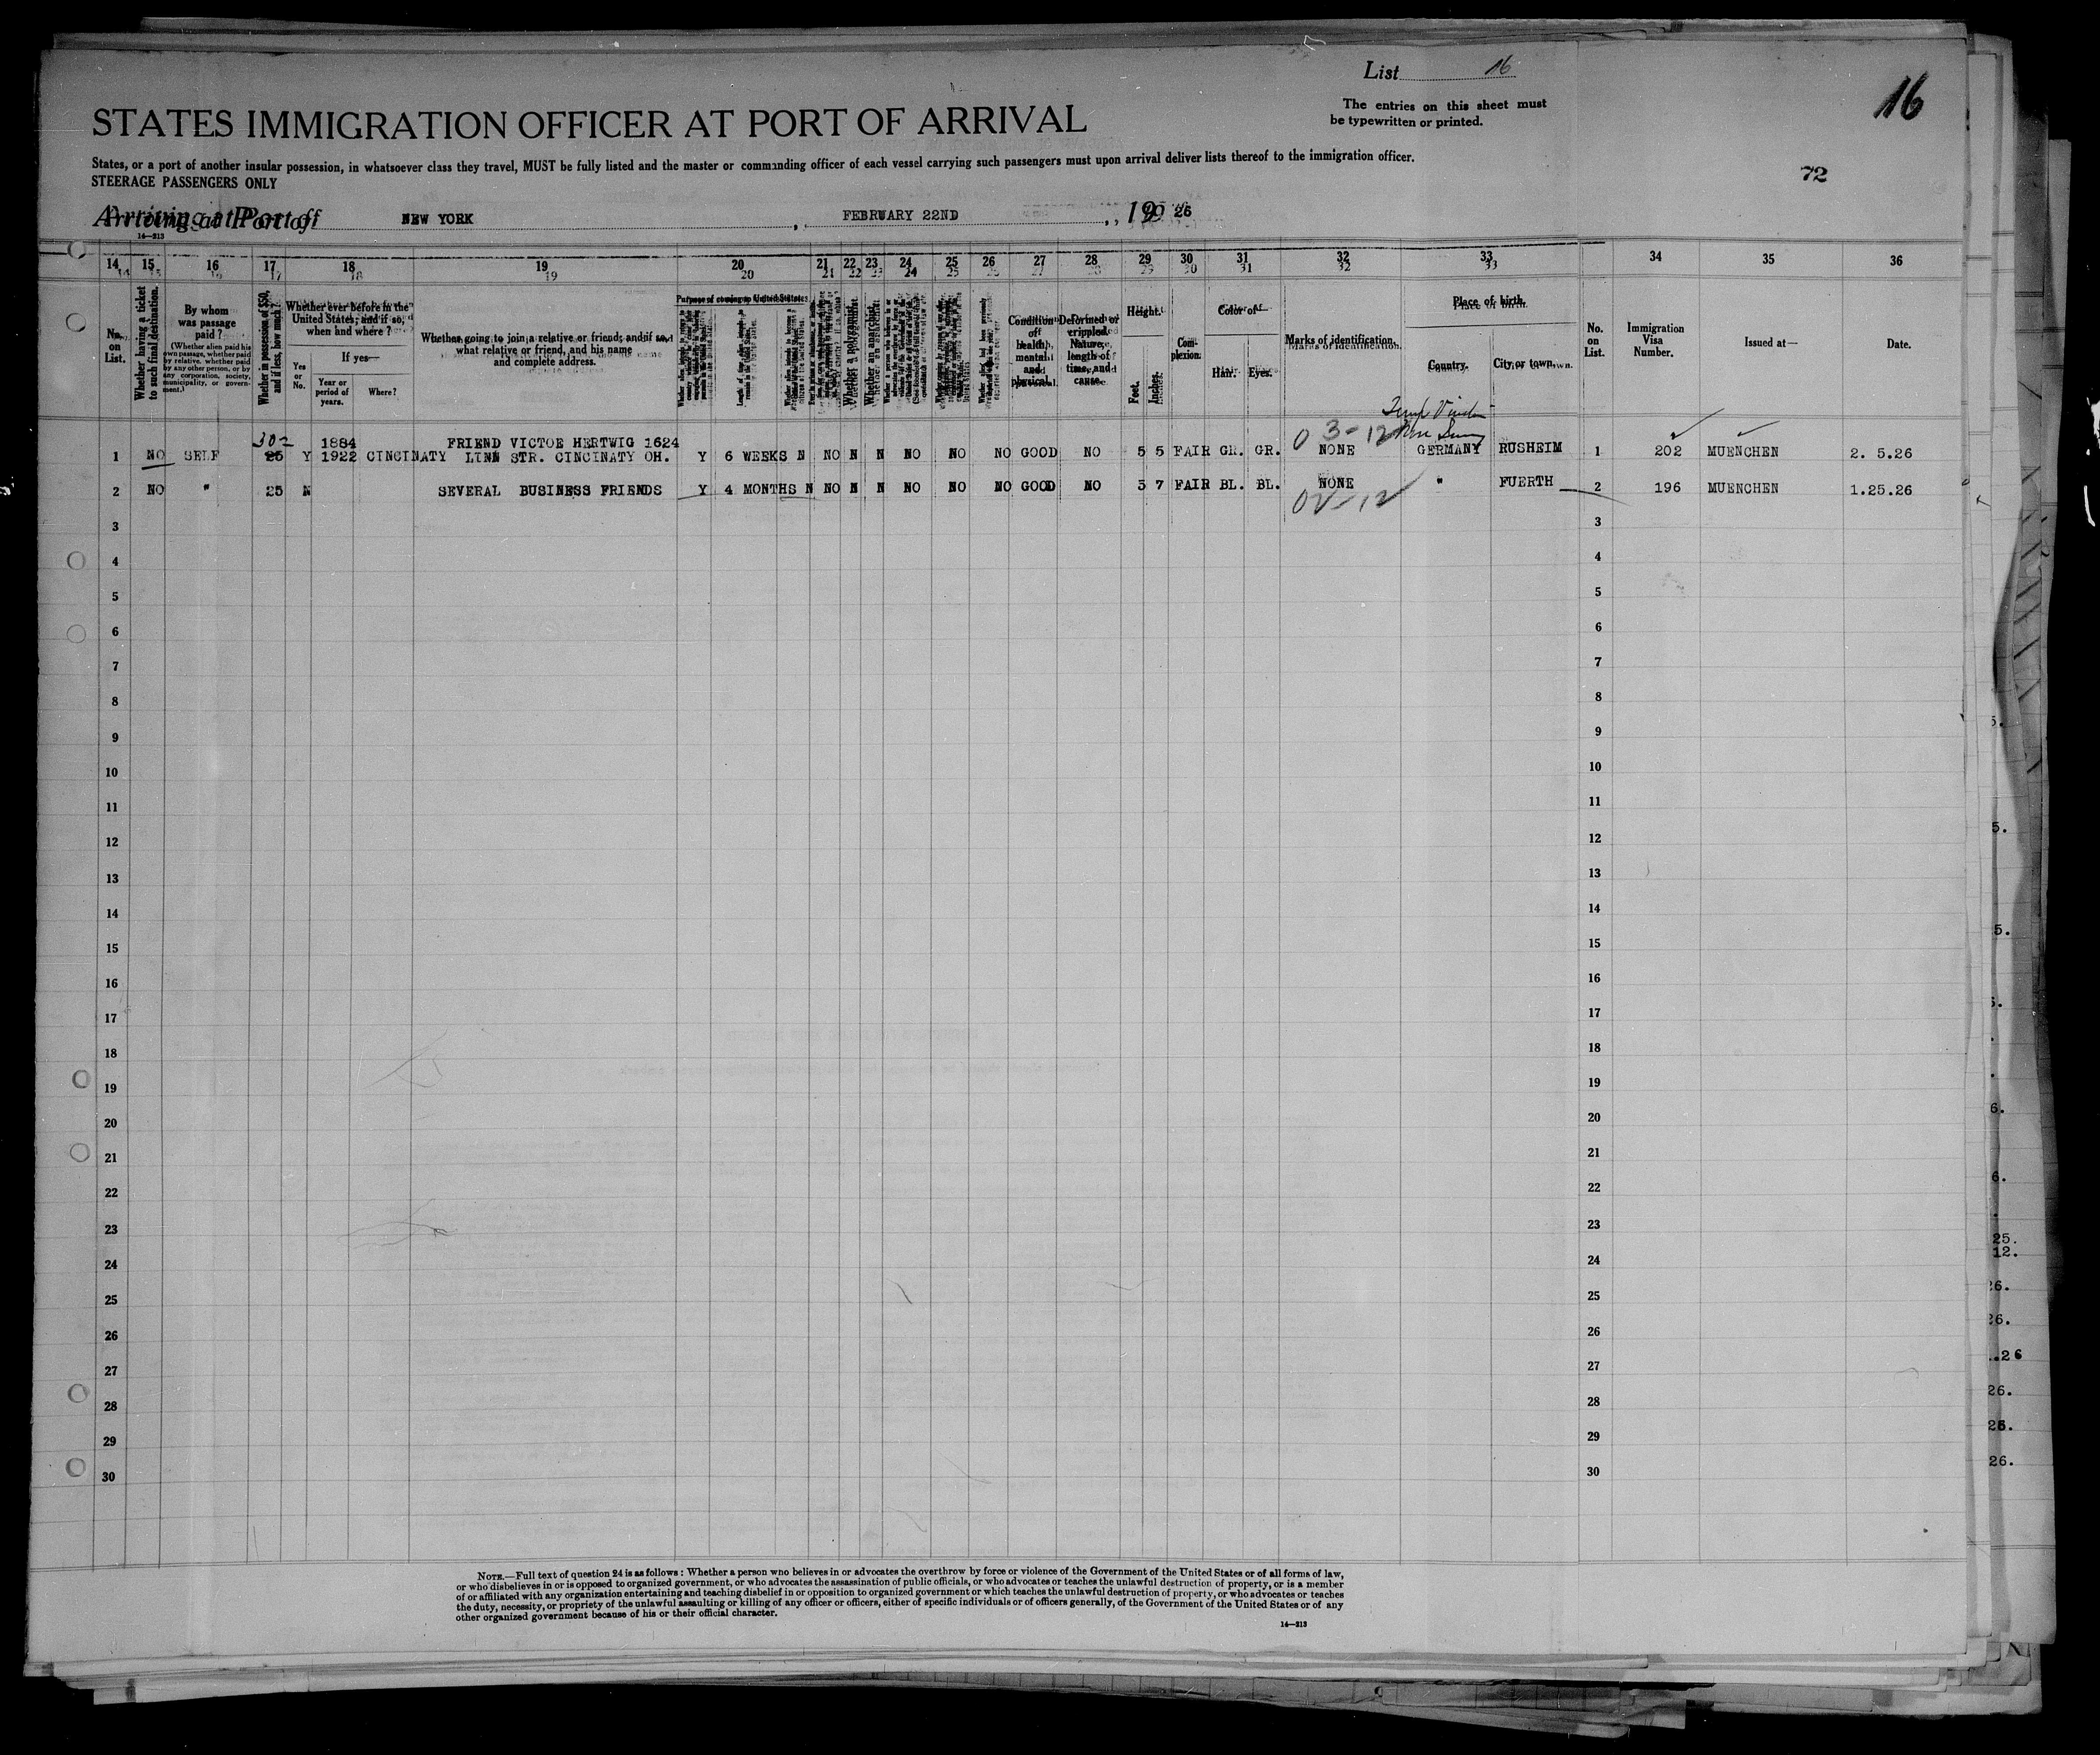 List 16
The entries on this sheet must
be typewritten or printed.
16
STATES IMMIGRATION OFFICER AT PORT OF ARRIVAL
States, or a port of another insular possession, in whatsoever class they travel, MUST be fully listed and the master or commanding officer of each vessel carrying such passengers must upon arrival deliver lists thereof to the immigration officer.
STEERAGE PASSENGERS ONLY
72
Arriving at Port of NEW YORK , FEBRUARY 22ND , 19 26
14—213
14 15 16 17 18 19 20 21 22 23 24 25 26 27 28 29 30 31 32 33 34 35 36
No. on List.
Whether having a ticket to such final destination.
By whom was passage paid?
(Whether alien paid his own passage, whether paid by relative, whether paid by any other person, or by any corporation, society, municipality, or government.)
Whether in possession of $50, and if less, how much?
Whether ever before in the United States; and if so, when and where?
If yes—
Yes or No.
Year or period of years.
Where?
Whether going to join a relative or friend; and if so, what relative or friend, and his name and complete address.
Purpose of coming to United States.
Whether a polygamist.
Whether an anarchist.
Condition of health, mental and physical.
Deformed or crippled. Nature, length of time, and cause.
Height.
Feet.
Inches.
Complexion.
Color of—
Hair.
Eyes.
Marks of identification.
Place of birth.
Country.
City or town.
No. on List.
Immigration Visa Number.
Issued at—
Date.
30 03-12
1884 FRIEND VICTOE HERTWIG 1624
1 NO SELF 25 Y 1922 CINCINATY LINN STR. CINCINATY OH. Y 6 WEEKS N NO N N NO NO NO GOOD NO 5 5 FAIR GR. GR. NONE GERMANY RUSHEIM 1 202 MUENCHEN 2. 5.26
2 NO " 25 N SEVERAL BUSINESS FRIENDS Y 4 MONTHS N NO N N NO NO NO GOOD NO 5 7 FAIR BL. BL. NONE " FUERTH 2 196 MUENCHEN 1.25.26
3 3
4 4
5 5
6 6
7 7
8 8
9 9
10 10
11 11
12 12
13 13
14 14
15 15
16 16
17 17
18 18
19 19
20 20
21 21
22 22
23 23
24 24
25 25
26 26
27 27
28 28
29 29
30 30
NOTE.—Full text of question 24 is as follows: Whether a person who believes in or advocates the overthrow by force or violence of the Government of the United States or of all forms of law,
or who disbelieves in or is opposed to organized government, or who advocates the assassination of public officials, or who advocates or teaches the unlawful destruction of property, or is a member
of or affiliated with any organization entertaining and teaching disbelief in or opposition to organized government or which teaches the unlawful destruction of property, or who advocates or teaches
the duty, necessity, or propriety of the unlawful assaulting or killing of any officer or officers, either of specific individuals or of officers generally, of the Government of the United States or of any
other organized government because of his or their official character.
14—213